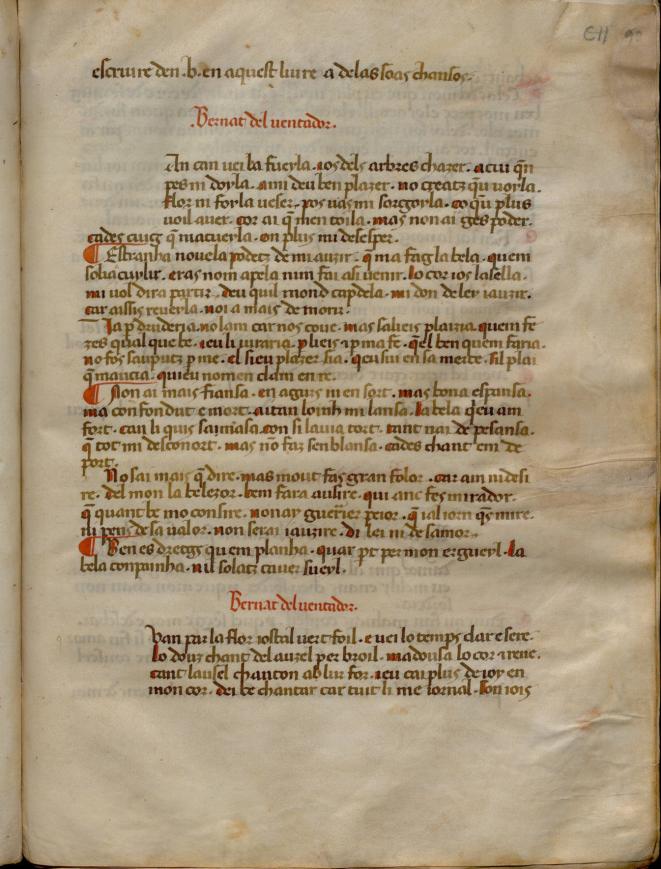 CII 90
escruire den .b. en aquest liure a de las soas chansos.
.Bernat del uentador.
An can uei la fueyla. ios dels arbres chazer. a cui qͥn
pes ni doyla. ami deu ben plazer. no creatz qu uoyla.
flor ni foyla ueser. pos uas mi sorgoyla. co qu plus
uoil auer. cor ai q̄ men toila. mas non ai ges poder.
cades cuig q̄ macueyla. on plus mi desesper.
¶ Estranha nouela podetz de mi auzir. q̄ ma fag la bela. quem
solia cuylir. eras nom apela nim fai asi uenir. lo cor ios lasella.
mi uol dira partir. deu quil mond capdela. mi don de ley iauzir.
car aissis reuerla. noi a mais de morir.
Ia p̄ druderia. no lam car nos coue. mas saliers plaizia. quem fe
zes qual que be. ieu li iuraria. p̄ lieis ⁊ p̄ ma fe. q̄l ben quem faria.
no fos sauputz p̄ me. el sieu plazer sia. qeu sui en sa merce. sil plai
q̄ maucia. quieu no men clam en re.
¶ Non ai mais fiansa. en agurs ni en sort. mas bona esp̄ansa.
ma confondut e mort. aitan loinh mi lansa. la bela q̄eu am
fort. can li quis samiasa. con si lauia tort. tant nai de pesansa.
q̄ tot mi desconort. mas nō faz senblansa. cades chant em de
port.
No sai mais q̄ dire. mas mout faz gran folor. car am ni desi
re. del mon la belezor. ben fara ausire. qui anc fes mirador.
q̄ quant be mo consire. non ay guerier peior. q̄ ial iorn q̄s mire.
ni pens de sa ualor. non serai iauzire. di lei ni de samor.
¶ Ben es dretgs quem planha. quar pt per mon ergueyl. la
bela conpainha. nil solatz cauer sueyl.
Bernat del uentador.
Can par la flor iostal uert foil. e uei lo temps clar e sere.
lo douz chant del auzel per broil. ma dousa lo cor ⁊ reue.
tant lausel chanton ab lur for. ieu cai plus de ioy en
mon cor. dei be chantar car tuit li me iornal. son iois